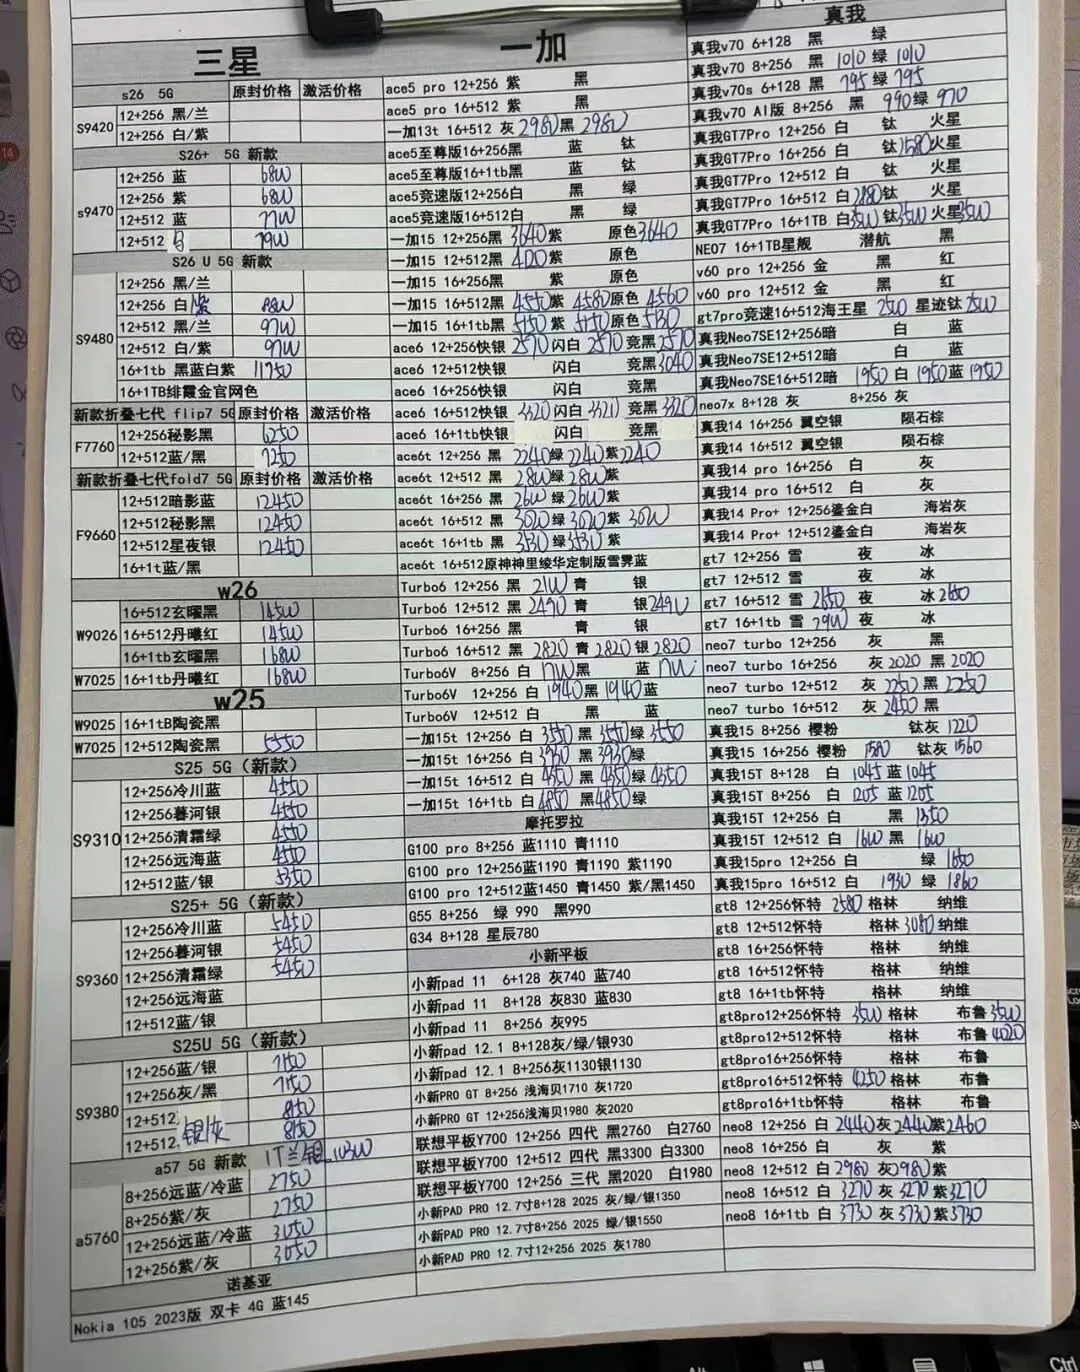 三星
s26 5G 原封价格 激活价格
S9420
12+256 黑/兰
12+256 白/紫
S26+ 5G 新款
s9470
12+256 蓝 6800
12+256 紫 6800
12+512 蓝 7700
12+512 白 7900
S26 U 5G 新款
S9480
12+256 黑/兰
12+256 白 8800
12+512 黑/兰 9700
12+512 白/紫 9700
16+1tb 黑蓝白紫 11750
16+1TB绯霞金官网色
新款折叠七代 flip7 5G 原封价格 激活价格
F7760
12+256秘影黑 6250
12+512蓝/黑 7250
新款折叠七代fold7 5G 原封价格 激活价格
F9660
12+512暗影蓝 12450
12+512秘影黑 12450
12+512星夜银 12450
16+1t蓝/黑
w26
W9026
16+512玄曜黑 14500
16+512丹曦红 14500
16+1tb玄曜黑 16800
W7025 16+1tb丹曦红 16800
w25
W9025 16+1tB陶瓷黑
W7025 12+512陶瓷黑 5550
S25 5G（新款）
S9310
12+256冷川蓝 4550
12+256暮河银 4550
12+256清霜绿 4550
12+256远海蓝 4550
12+512蓝/银 5350
S25+ 5G（新款）
S9360
12+256冷川蓝 5450
12+256暮河银 5450
12+256清霜绿 5450
12+256远海蓝
12+512蓝/银
S25U 5G（新款）
S9380
12+256蓝/银 7150
12+256灰/黑 7150
12+512 8150
12+512 银/灰 8150
a57 5G 新款 1T兰/银 10300
a5760
8+256远蓝/冷蓝 2750
8+256紫/灰 2750
12+256远蓝/冷蓝 3050
12+256紫/灰 3050
诺基亚
Nokia 105 2023版 双卡 4G 蓝145
一加
ace5 pro 12+256 紫 黑
ace5 pro 16+512 紫 黑
一加13t 16+512 灰 2980 黑 2980
ace5至尊版16+256黑 蓝 钛
ace5至尊版16+1tb黑 蓝 钛
ace5竞速版12+256白 黑 绿
ace5竞速版16+512白 黑 绿
一加15 12+256黑 3640 紫 原色 3640
一加15 12+512黑 紫 原色
一加15 16+256黑 紫 原色
一加15 16+512黑 4550 紫 4580 原色 4560
一加15 16+1tb黑 5150 紫 5150 原色 5130
ace6 12+256快银 2570 闪白 2570 竞黑 2570
ace6 12+512快银 闪白 竞黑 3040
ace6 16+256快银 闪白 竞黑
ace6 16+512快银 3320 闪白 3320 竞黑 3320
ace6 16+1tb快银 闪白 竞黑
ace6t 12+256 黑 2240 绿 2240 紫 2240
ace6t 12+512 黑 2800 绿 2800 紫
ace6t 16+256 黑 2600 绿 2600 紫
ace6t 16+512 黑 3020 绿 3020 紫 3000
ace6t 16+1tb 黑 3530 绿 3530 紫
ace6t 16+512原神神里绫华定制版雪霁蓝
Turbo6 12+256 黑 2100 青 银
Turbo6 12+512 黑 2490 青 银 2490
Turbo6 16+256 黑 青 银
Turbo6 16+512 黑 2820 青 2820 银 2820
Turbo6V 8+256 白 1700 黑 蓝 1700
Turbo6V 12+256 白 1940 黑 1940 蓝
Turbo6V 12+512 白 黑 蓝
一加15t 12+256 白 3550 黑 3550 绿 3550
一加15t 16+256 白 3930 黑 3930 绿
一加15t 16+512 白 4350 黑 4350 绿 4350
一加15t 16+1tb 白 4850 黑 4850 绿
摩托罗拉
G100 pro 8+256 蓝1110 青1110
G100 pro 12+256蓝1190 青1190 紫1190
G100 pro 12+512蓝1450 青1450 紫/黑1450
G55 8+256 绿 990 黑990
G34 8+128 星辰780
小新平板
小新pad 11 6+128 灰740 蓝740
小新pad 11 8+128 灰830 蓝830
小新pad 11 8+256 灰995
小新pad 12.1 8+128灰/绿/银930
小新pad 12.1 8+256灰1130银1130
小新PRO GT 8+256 浅海贝1710 灰1720
小新PRO GT 12+256浅海贝1980 灰2020
联想平板Y700 12+256 四代 黑2760 白2760
联想平板Y700 12+512 四代 黑3300 白3300
联想平板Y700 12+256 三代 黑2020 白1980
小新PAD PRO 12.7寸8+128 2025 灰/绿/银1350
小新PAD PRO 12.7寸8+256 2025 绿/银1550
小新PAD PRO 12.7寸12+256 2025 灰1780
真我
真我v70 6+128 黑 绿
真我v70 8+256 黑 1010 绿 1010
真我v70s 6+128 黑 795 绿 795
真我v70 AI版 8+256 黑 990 绿 970
真我GT7Pro 12+256 白 钛 火星
真我GT7Pro 16+256 白 钛 2580 火星
真我GT7Pro 12+512 白 钛 火星
真我GT7Pro 16+512 白 2880 钛 火星
真我GT7Pro 16+1TB 白 3500 钛 3500 火星 3500
NE07 16+1TB星舰 潜航 黑
v60 pro 12+256 金 黑 红
v60 pro 12+512 金 黑 红
gt7pro竞速16+512海王星 2500 星迹钛 2500
真我Neo7SE12+256暗 白 蓝
真我Neo7SE12+512暗 白 蓝
真我Neo7SE16+512暗 1950 白 1950 蓝 1950
neo7x 8+128 灰 8+256 灰
真我14 16+256 翼空银 陨石棕
真我14 16+512 翼空银 陨石棕
真我14 pro 16+256 白 灰
真我14 pro 16+512 白 灰
真我14 Pro+ 12+256鎏金白 海岩灰
真我14 Pro+ 12+512鎏金白 海岩灰
gt7 12+256 雪 夜 冰
gt7 12+512 雪 夜 冰
gt7 16+512 雪 2650 夜 冰 2650
gt7 16+1tb 雪 2900 夜 冰
neo7 turbo 12+256 灰 黑
neo7 turbo 16+256 灰 2020 黑 2020
neo7 turbo 12+512 灰 2250 黑 2250
neo7 turbo 16+512 灰 2450 黑
真我15 8+256 樱粉 钛灰 1220
真我15 16+256 樱粉 1580 钛灰 1560
真我15T 8+128 白 1045 蓝 1045
真我15T 8+256 白 1205 蓝 1205
真我15T 12+256 白 黑 1350
真我15T 12+512 白 1600 黑 1600
真我15pro 12+256 白 绿 1650
真我15pro 16+512 白 1930 绿 1860
gt8 12+256怀特 2580 格林 纳维
gt8 12+512怀特 格林 3080 纳维
gt8 16+256怀特 格林 纳维
gt8 16+512怀特 格林 纳维
gt8 16+1tb怀特 格林 纳维
gt8pro12+256怀特 3500 格林 布鲁 3500
gt8pro12+512怀特 格林 布鲁 4020
gt8pro16+256怀特 格林 布鲁
gt8pro16+512怀特 4250 格林 布鲁
gt8pro16+1tb怀特 格林 布鲁
neo8 12+256 白 2440 灰 2440 紫 2460
neo8 16+256 白 灰 紫
neo8 12+512 白 2980 灰 2980 紫
neo8 16+512 白 3270 灰 3270 紫 3270
neo8 16+1tb 白 3730 灰 3730 紫 3730